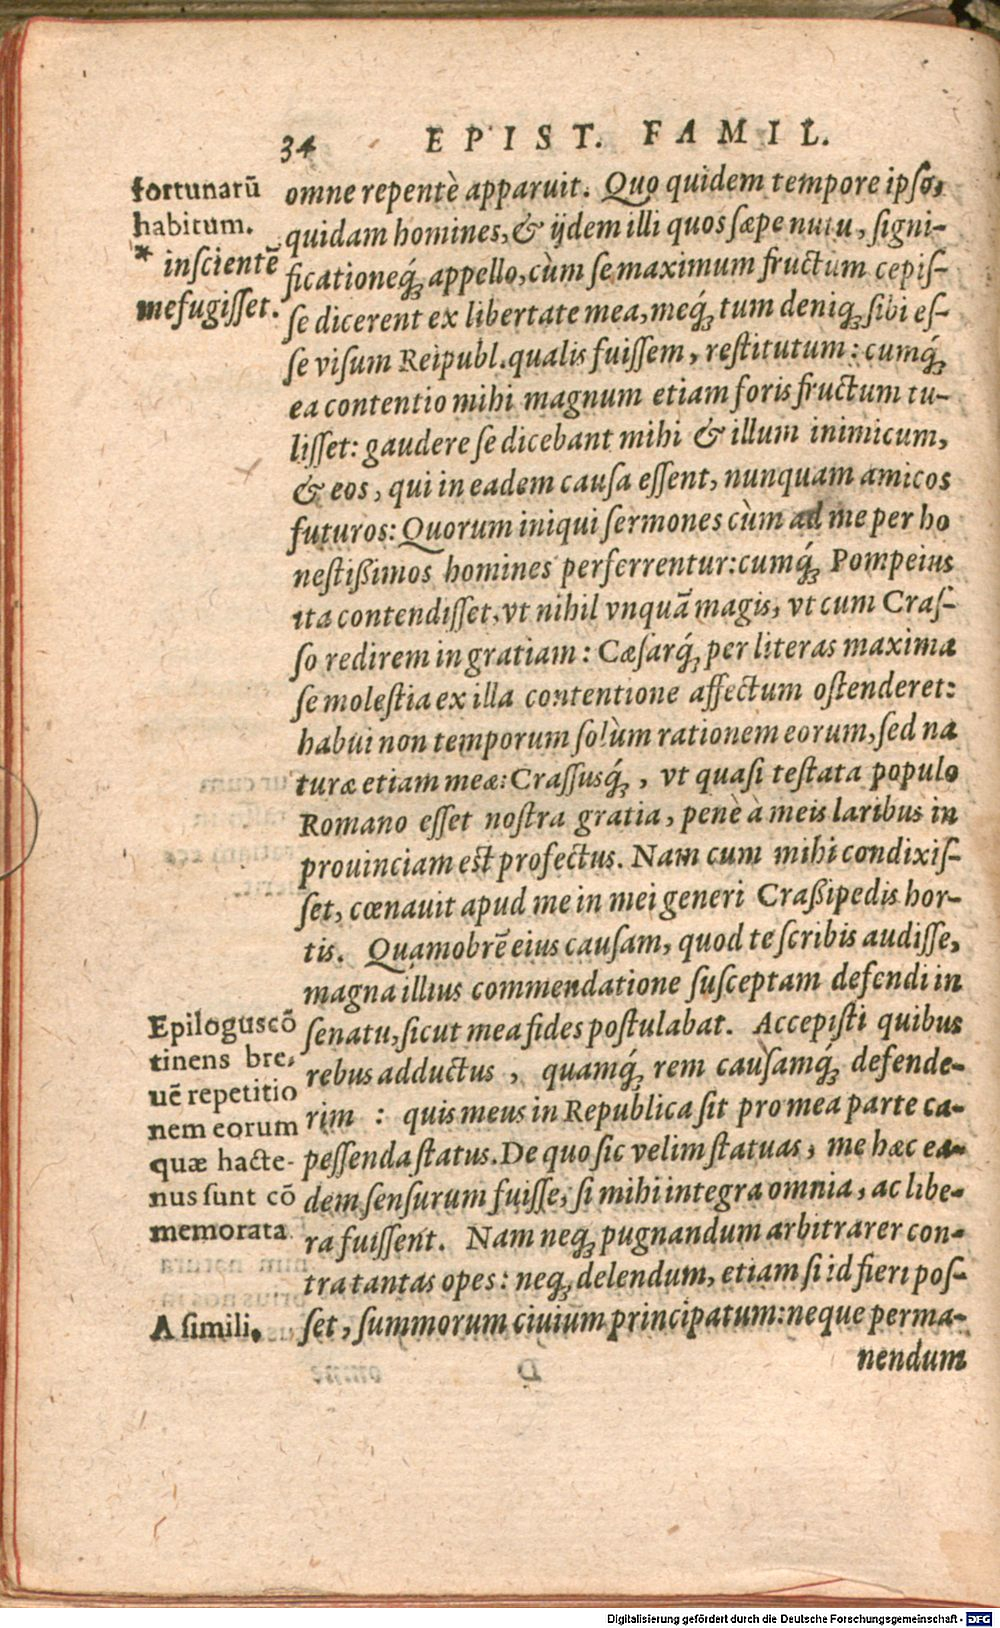 34 EPIST. FAMIL.
fortunarũ
habitum.
* inscientẽ
mefugisset.
omne repentè apparuit. Quo quidem tempore ipso,
quidam homines, & ijdem illi quos sæpe nutu, signi-
ficationeq́; appello, cùm se maximum fructum cepis-
se dicerent ex libertate mea, meq́; tum deniq; sibi es-
se visum Reipubl. qualis fuissem, restitutum: cumq́;
ea contentio mihi magnum etiam foris fructum tu-
lisset: gaudere se dicebant mihi & illum inimicum,
& eos, qui in eadem causa essent, nunquam amicos
futuros: Quorum iniqui sermones cùm ad me per ho
nestißimos homines perferrentur: cumq́; Pompeius
ita contendisset, vt nihil vnquã magis, vt cum Cras-
so redirem in gratiam: Cæsarq́; per literas maxima
se molestia ex illa contentione affectum ostenderet:
habui non temporum solùm rationem eorum, sed na
turæ etiam meæ: Crassusq́;, vt quasi testata populo
Romano esset nostra gratia, penè à meis laribus in
prouinciam est profectus. Nam cum mihi condixis-
set, cœnauit apud me in mei generi Craßipedis hor-
tis. Quamobrẽ eius causam, quod te scribis audisse,
magna illius commendatione susceptam defendi in
senatu, sicut mea fides postulabat. Accepisti quibus
rebus adductus, quamq́; rem causamq́; defende-
rim: quis meus in Republica sit pro mea parte ca-
pessenda status. De quo sic velim statuas, me hæc ea-
dem sensurum fuisse, si mihi integra omnia, ac libe-
ra fuissent. Nam neq; pugnandum arbitrarer con-
tra tantas opes: neq; delendum, etiam si id fieri pos-
set, summorum ciuium principatum: neque perma-
nendum
Epiloguscõ
tinens bre-
uẽ repetitio
nem eorum
quæ hacte-
nus sunt cõ
memorata.
A simili.
Digitalisierung gefördert durch die Deutsche Forschungsgemeinschaft - DFG